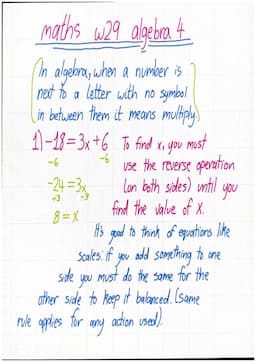 maths w29 algebra 4
In algebra, when a number is
next to a letter with no symbol
in between them it means multiply.
1) -18=3x+6 To find x, you must
-6 -6 use the reverse operation
-24=3x (on both sides) until you
÷3 ÷3 find the value of x.
8=x
It's good to think of equations like
scales: if you add something to one
side you must do the same for the
other side to keep it balanced. (same
rule applies for any action used).